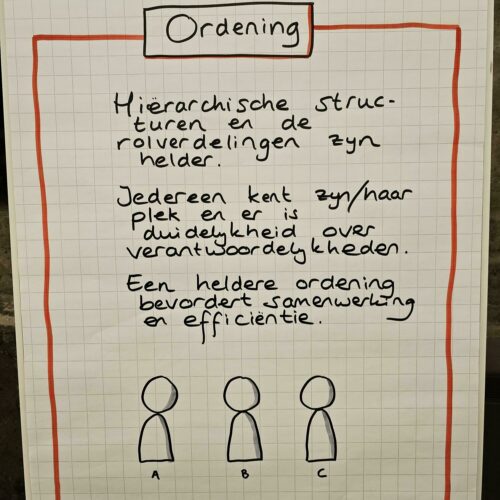 Ordening
Hiërarchische struc-
turen en de
rolverdelingen zyn
helder.
Jedereen kent zyn/haar
plek en er is
duidelykheid over
verantwoordelykheden.
Een heldere ordening
bevordert samenwerking
en efficiëntie.
A B C